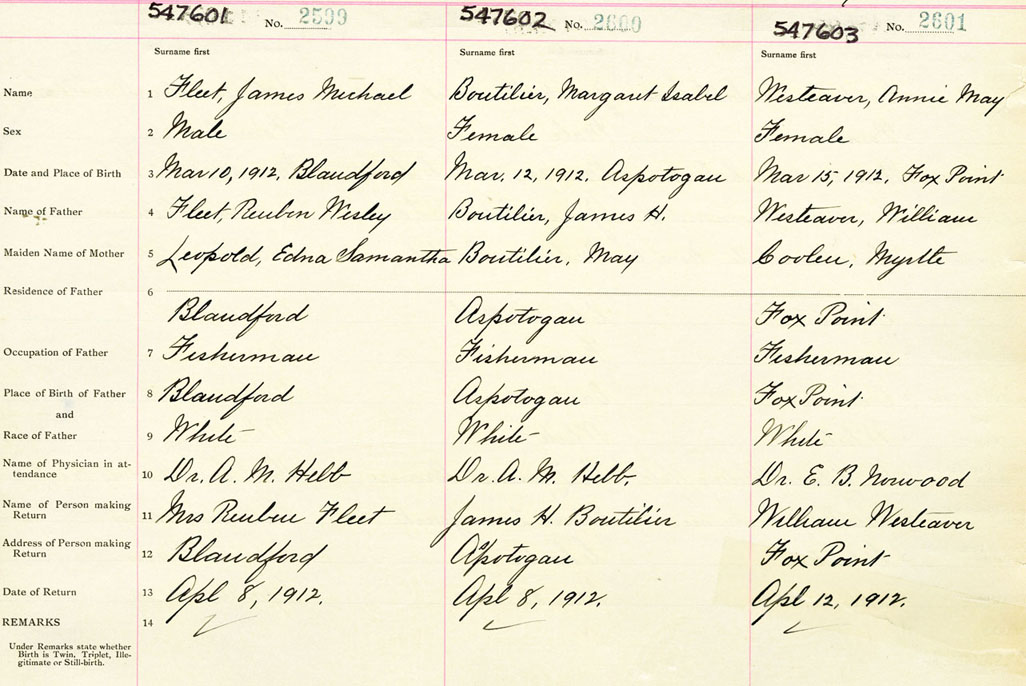 547601 No. 2599 547602 No. 2600 547603 No. 2601
Surname first Surname first Surname first
Name 1 Fleet, James Michael Boutilier, Margaret Isabel Westeaver, Annie May
Sex 2 Male Female Female
Date and Place of Birth 3 Mar 10, 1912. Blandford Mar. 12, 1912. Aspotogan Mar 15, 1912. Fox Point
Name of Father 4 Fleet, Reuben Wesley Boutilier, James H. Westeaver, William
Maiden Name of Mother 5 Leopold, Edna Samantha Boutilier, May Coolen, Myrtle
Residence of Father 6
Blandford Aspotogan Fox Point
Occupation of Father 7 Fisherman Fisherman Fisherman
Place of Birth of Father 8 Blandford Aspotogan Fox Point
and
Race of Father 9 White White White
Name of Physician in at-
tendance 10 Dr. A. M. Hebb Dr. A. M. Hebb, Dr. E. B. Norwood
Name of Person making
Return 11 Mrs Reuben Fleet James H. Boutilier William Westeaver
Address of Person making
Return 12 Blandford Aspotogan Fox Point
Date of Return 13 Apl 8, 1912. Apl 8, 1912. Apl 12, 1912.
REMARKS 14
Under Remarks state whether
Birth is Twin, Triplet, Ille-
gitimate or Still-birth.